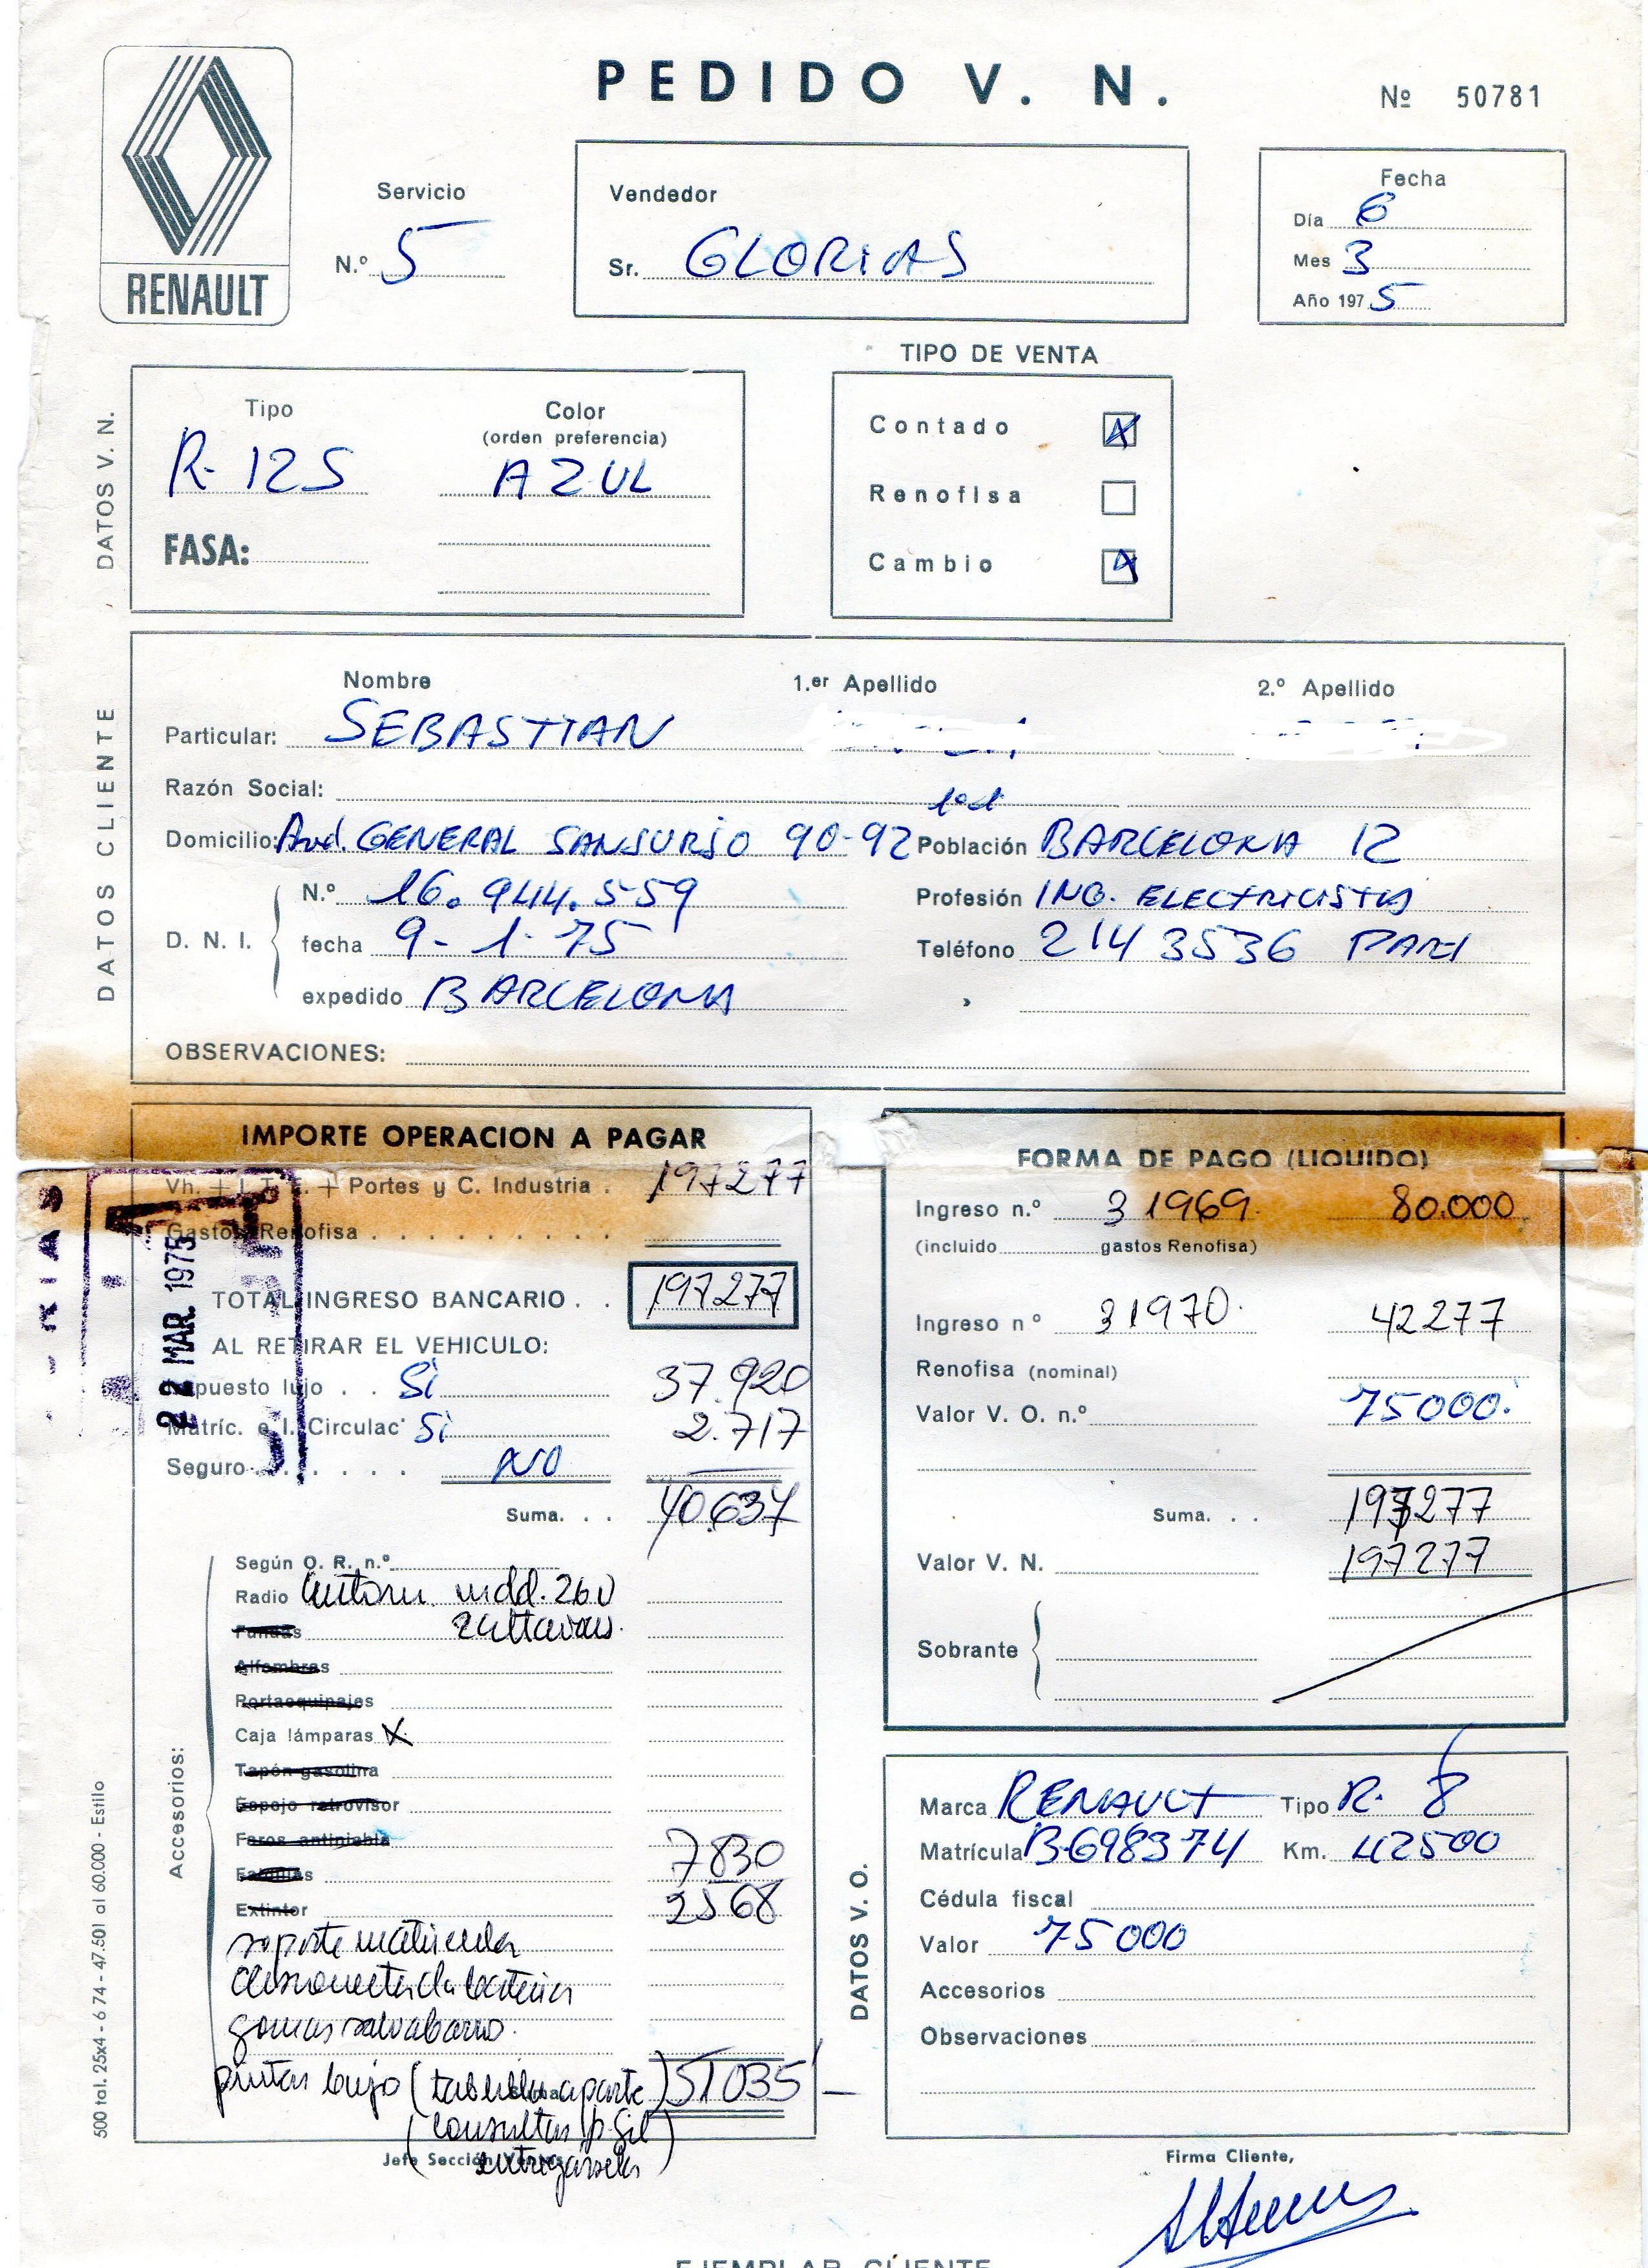 PEDIDO V. N.
Nº 50781
RENAULT
Servicio
N.º 5
Vendedor
Sr. GLORIAS
Fecha
Día 6
Mes 3
Año 1975
DATOS V. N.
Tipo
Color
(orden preferencia)
R-12S AZUL
FASA:
TIPO DE VENTA
Contado X
Renofisa
Cambio X
DATOS CLIENTE
Nombre 1.er Apellido 2.º Apellido
Particular: SEBASTIAN
Razón Social:
Domicilio: Avd. GENERAL SANJURJO 90-92 Población BARCELONA 12
D. N. I.
N.º 16.944.559 Profesión ING. ELECTRICISTA
fecha 9-1-75 Teléfono 214 3536
expedido BARCELONA
OBSERVACIONES:
IMPORTE OPERACION A PAGAR
Portes y C. Industria . 197277
Gastos Renofisa
TOTAL INGRESO BANCARIO . . 197277
AL RETIRAR EL VEHICULO:
puesto lujo . . Si 37.920
Matríc. e I. Circulac. Si 2.717
Seguro NO
Suma. . . 40.637
22 MAR. 1975
Accesorios:
Según O. R. n.º
Radio mdd. 260
2 altavoces.
Fundas
Alfombras
Portaequipajes
Caja lámparas X
Tapón gasolina
Espejo retrovisor
Faros antiniebla 7830
Extintor 2568
soporte matricula
desconecta da bateria
gomas salvabarro.
pintar bajo (tablilla aparte) 51035
(consultar p. Gil
entregársela)
Jefe Sección Ventas
FORMA DE PAGO (LIQUIDO)
Ingreso n.º 31969. 80.000
(incluido gastos Renofisa)
Ingreso n º 31970. 42277
Renofisa (nominal)
Valor V. O. n.º 75000.
Suma. . . 197277
Valor V. N. 197277
Sobrante
DATOS V. O.
Marca RENAULT Tipo R. 8
Matrícula B-698374 Km. 42500
Cédula fiscal
Valor 75000
Accesorios
Observaciones
Firma Cliente,
500 tal. 25x4 - 6 74 - 47.501 al 60.000 - Estilo
EJEMPLAR CLIENTE